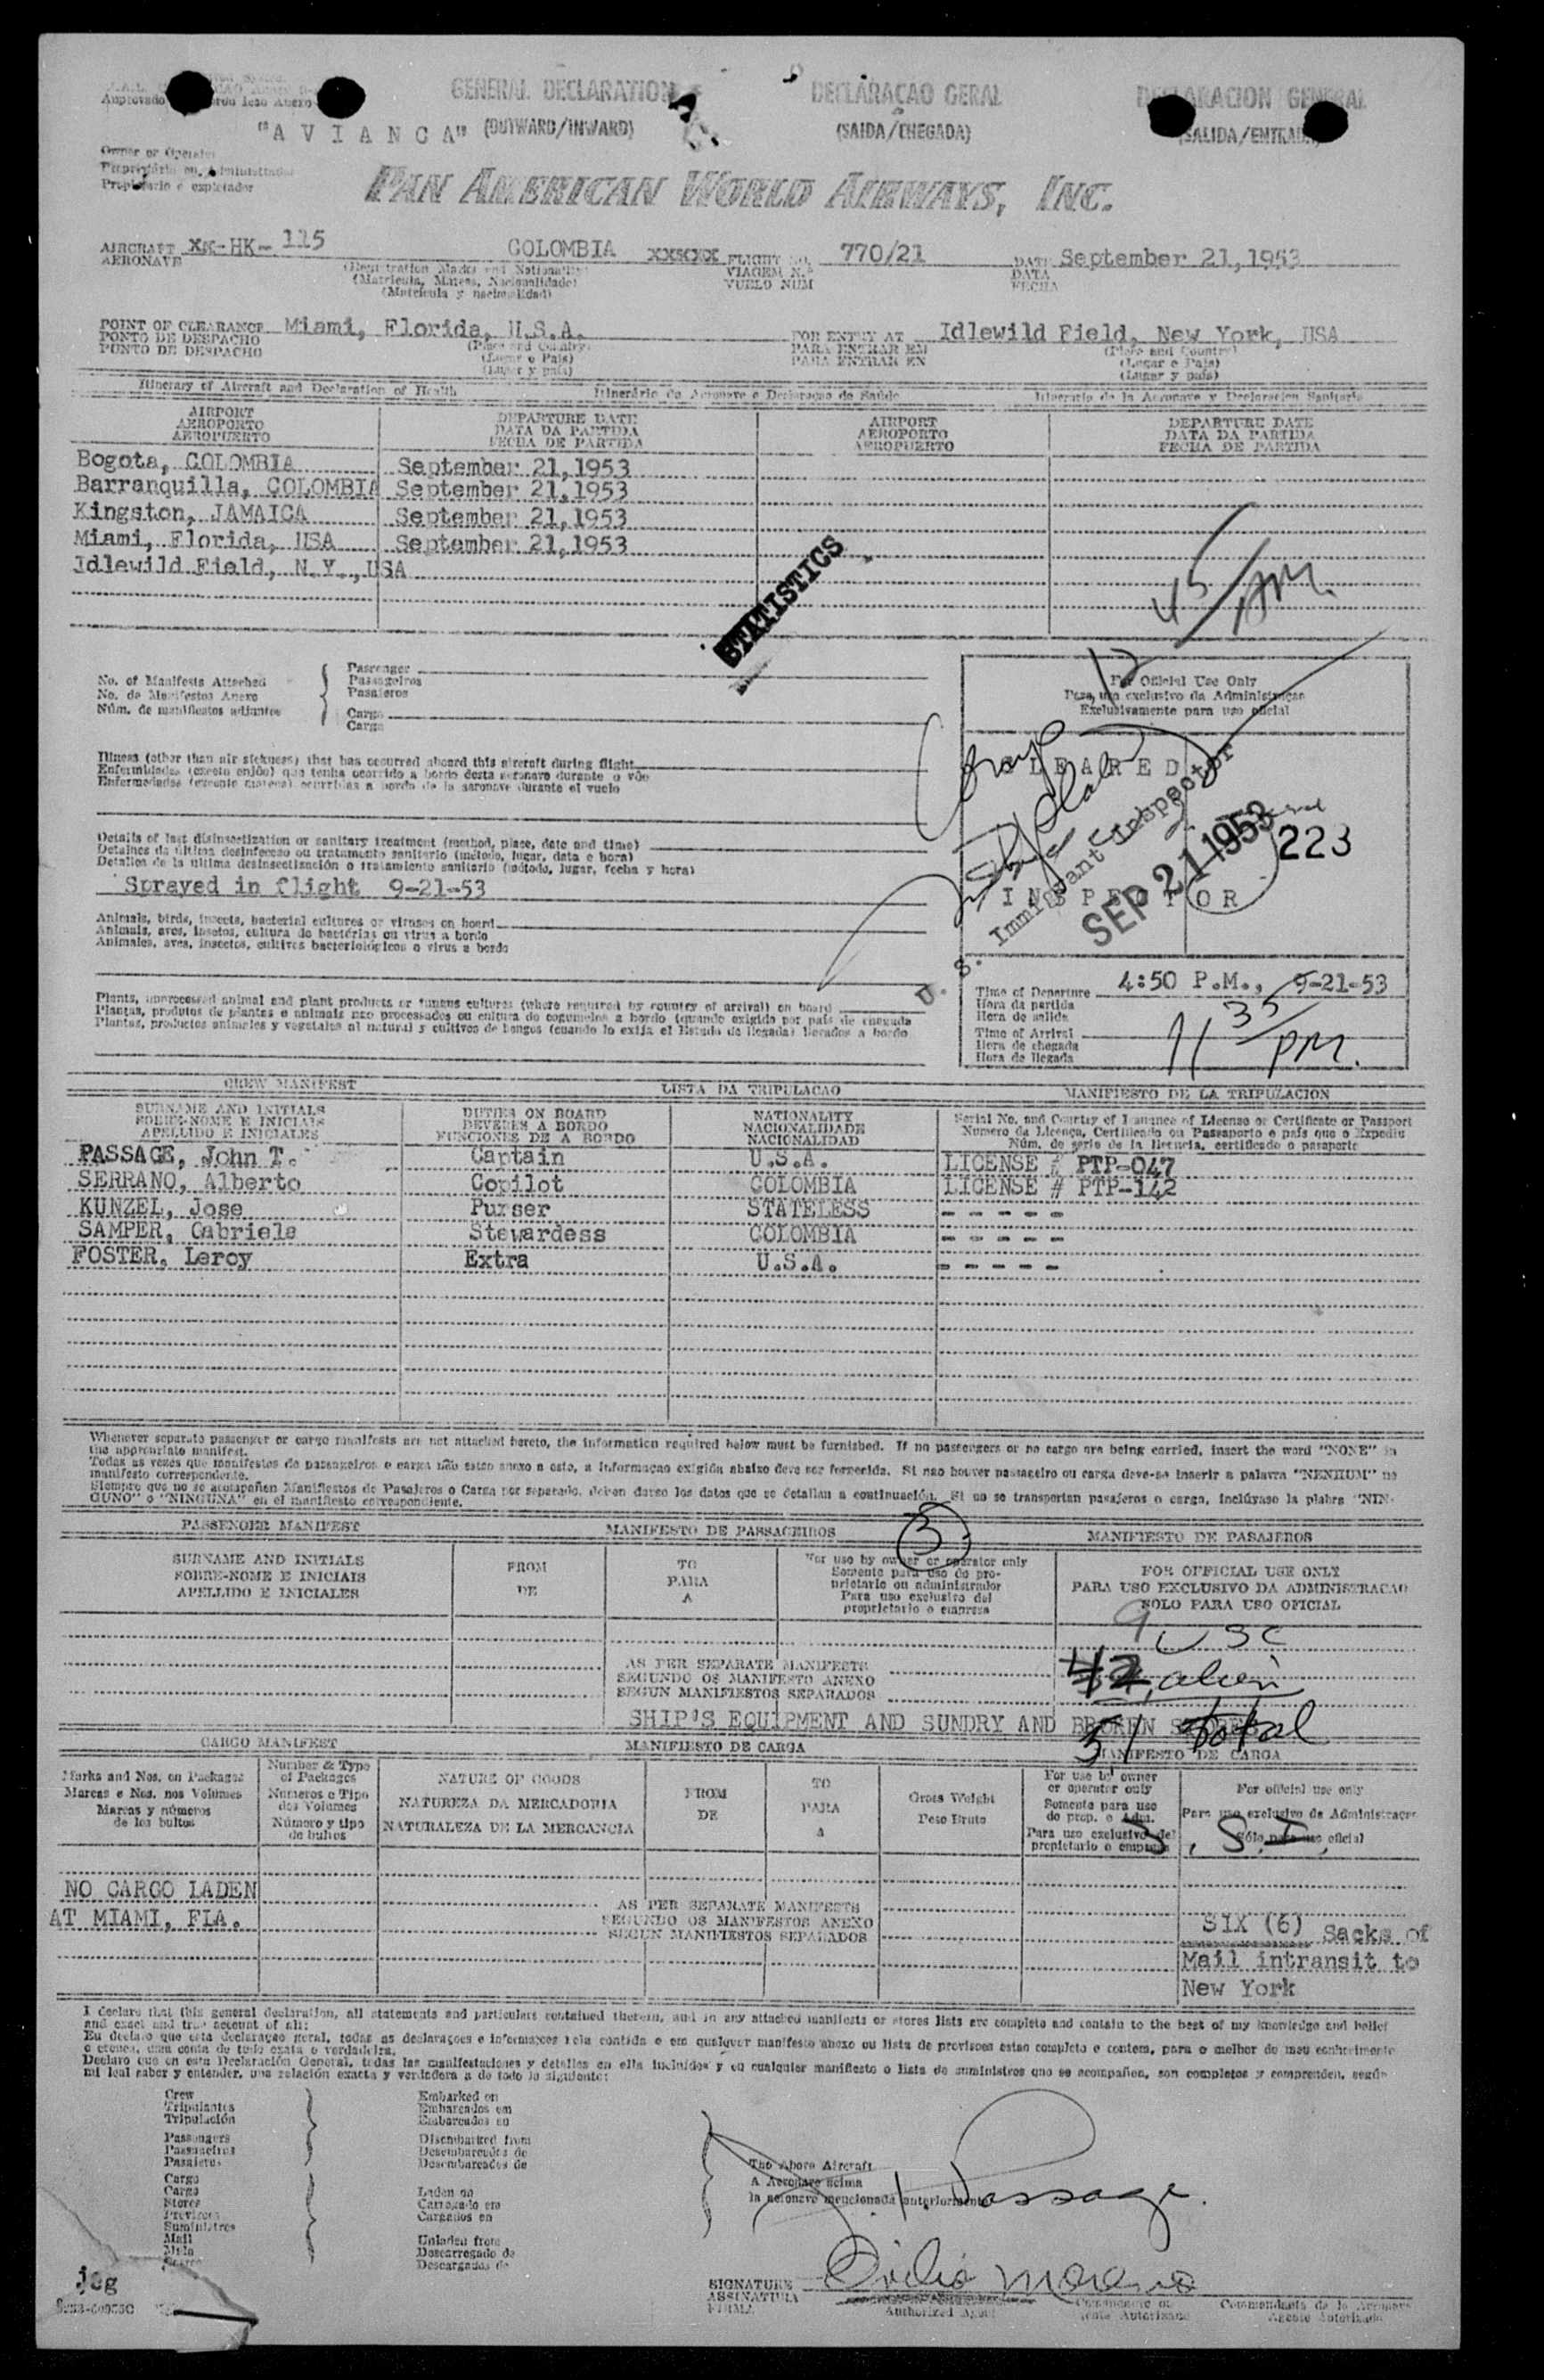 Amprovado
GENERAL DECLARATION
DECLARAÇAO GERAL
GENERAL
"AVIANCA" (OUTWARD/INWARD)
(SAIDA/CHEGADA)
SALIDA/ENTRADA
Owner or Operator
Proprietário ou Administrador
Propietario o explotador
PAN AMERICAN WORLD AIRWAYS, INC.
AIRCRAFT XX-HK-115 COLOMBIA XXXXX FLIGHT NO. 770/21 DATE September 21,1953
AERONAVE
(Registration Marks and Nationality)
VIAGEM N.º
DATA
(Matricula, Marcas, Nacionalidade)
VUELO NUM
FECHA
(Matricula y nacionalidad)
POINT OF CLEARANCE Miami, Florida, U.S.A. FOR ENTRY AT Idlewild Field, New York, USA
PONTO DE DESPACHO
(Place and Country)
PARA ENTRAR EM
(Place and Country)
PUNTO DE DESPACHO
(Lugar e Pais)
PARA ENTRAR EN
(Lugar e Pais)
(Lugar y pais)
(Lugar y pais)
Itinerary of Aircraft and Declaration of Health
Itinerário da Aeronave e Declaraçao de Saúde
Itinerario de la Aeronave y Declaracion Sanitaria
AIRPORT DEPARTURE DATE AIRPORT DEPARTURE DATE
AEROPORTO DATA DA PARTIDA AEROPORTO DATA DA PARTIDA
AEROPUERTO FECHA DE PARTIDA AEROPUERTO FECHA DE PARTIDA
Bogota, COLOMBIA September 21,1953
Barranquilla, COLOMBIA September 21,1953
Kingston, JAMAICA September 21,1953
Miami, Florida, USA September 21,1953
Idlewild Field, N.Y.,USA
STATISTICS
12 45/AM.
No. of Manifests Attached
No. de Manifestos Anexo
Núm. de manifiestos adjuntos
Passenger
Passageiros
Pasajeros
Cargo
Carga
For Official Use Only
Para uso exclusivo da Administraçao
Exclusivamente para uso oficial
Illness (other than air sickness) that has occurred aboard this aircraft during flight
Enfermidades (exceto enjôo) que tenha ocorrido a bordo desta aeronave durante o vôo
Enfermedades (excepto mareos) ocurridas a bordo de la aeronave durante el vuelo
CLEARED
U. S. Immigrant Inspector
SEP 21 1953
223
INSPECTOR
Details of last disinsectization or sanitary treatment (method, place, date and time)
Detalhes da última desinfeccao ou tratamento sanitario (método, lugar, data e hora)
Detalles de la última desinsectización o tratamiento sanitario (método, lugar, fecha y hora)
Sprayed in flight 9-21-53
Animals, birds, insects, bacterial cultures or viruses on board
Animais, aves, insetos, cultura de bactérias ou virus a bordo
Animales, aves, insectos, cultivos bacteriológicos o virus a bordo
Plants, unprocessed animal and plant products or fungus cultures (where required by country of arrival) on board
Plantas, produtos de plantas e animais nao processados ou cultura de cogumelos a bordo (quando exigido por pais de chegada
Plantas, productos animales y vegetales al natural y cultivos de hongos (cuando lo exija el Estado de llegada) llevados a bordo
Time of Departure 4:50 P.M., 9-21-53
Hora da partida
Hora de salida
Time of Arrival 11 35/PM.
Hora de chegada
Hora de llegada
CREW MANIFEST LISTA DA TRIPULACAO MANIFIESTO DE LA TRIPULACION
SURNAME AND INITIALS DUTIES ON BOARD NATIONALITY Serial No. and Country of Issuance of License or Certificate or Passport
SOBRE-NOME E INICIAIS DEVERES A BORDO NACIONALIDADE Numero da Licença, Certificado ou Passaporte e pais que o Expediu
APELLIDO E INICIALES FUNCIONES DE A BORDO NACIONALIDAD Núm. de serie de la licencia, certificado o pasaporte
PASSAGE, John T. Captain U.S.A. LICENSE # PTP-047
SERRANO, Alberto Copilot COLOMBIA LICENSE # PTP-142
KUNZEL, Jose Purser STATELESS - - - - -
SAMPER, Gabriela Stewardess COLOMBIA - - - - -
FOSTER, Leroy Extra U.S.A. - - - - -
Whenever separate passenger or cargo manifests are not attached hereto, the information required below must be furnished. If no passengers or no cargo are being carried, insert the word "NONE" in
the appropriate manifest.
Todas as vezes que manifestos de passageiros e carga não estao anexo a este, a informaçao exigida abaixo deve ser fornecida. Si nao houver passageiro ou carga deve-se inserir a palavra "NENHUM" no
manifesto correspondente.
Siempre que no se acompañen Manifiestos de Pasajeros o Carga por separado, deben darse los datos que se detallan a continuación. Si no se transportan pasajeros o carga, inclúyase la plabra "NIN-
GUNO" o "NINGUNA" en el manifiesto correspondiente.
PASSENGER MANIFEST MANIFESTO DE PASSAGEIROS MANIFIESTO DE PASAJEROS
SURNAME AND INITIALS
SOBRE-NOME E INICIAIS
APELLIDO E INICIALES
FROM
DE
TO
PARA
A
For use by owner or operator only
Somente para uso do pro-
prietario ou administrador
Para uso exclusivo del
proprietario o empresa
FOR OFFICIAL USE ONLY
PARA USO EXCLUSIVO DA ADMINISTRACAO
SOLO PARA USO OFICIAL
9 USC
AS PER SEPARATE MANIFESTS
SEGUNDO OS MANIFESTO ANEXO
SEGUN MANIFIESTOS SEPARADOS
42 alien
SHIP'S EQUIPMENT AND SUNDRY AND BROKEN STORES
51 total
CARGO MANIFEST MANIFIESTO DE CARGA MANIFESTO DE CARGA
Marks and Nos. on Packages
Marcas e Nos. nos Volumes
Marcas y números
de los bultos
Number & Type
of Packages
Numeros e Tipo
dos Volumes
Número y tipo
de bultos
NATURE OF GOODS
NATUREZA DA MERCADORIA
NATURALEZA DE LA MERCANCIA
FROM
DE
TO
PARA
A
Gross Weight
Peso Bruto
For use by owner
or operator only
Somente para uso
do prop. o Adm.
Para uso exclusivo del
propietario o empresa
For official use only
Para uso exclusivo da Administraçao
Sólo para uso oficial
NO CARGO LADEN
AT MIAMI, FLA.
AS PER SEPARATE MANIFESTS
SEGUNDO OS MANIFESTOS ANEXO
SEGUN MANIFIESTOS SEPARADOS
SIX (6) Sacks of
Mail intransit to
New York
I declare that this general declaration, all statements and particulars contained therein, and in any attached manifests or stores lists are complete and contain to the best of my knowledge and belief
and exact and true account of all:
Eu declaro que esta declaraçao geral, todas as declaraçoes e informaçoes nela contida e em qualquer manifesto anexo ou lista de provisoes estao completo e contem, para o melhor do meu conhecimento
e crença, uma conta de tudo exata e verdadeira.
Declaro que en esta Declaración General, todas las manifestaciones y detalles en ella incluidos y en cualquier manifiesto o lista de suministros que se acompañen, son completos y comprenden, según
mi leal saber y entender, una relación exacta y verdadera a de todo lo siguiente:
Crew
Tripulantes
Tripulación
Passengers
Passageiros
Pasajeros
Cargo
Carga
Stores
Previsoes
Suministros
Mail
Mala
Correo
Embarked on
Embarcados em
Embarcados en
Disembarked from
Desembarcados de
Desembarcados de
Laden on
Carregado em
Cargados en
Unladen from
Descarregado de
Descargados de
The Above Aircraft
A Aeronave acima
la aeronave mencionada anteriormente
J. T. Passage.
jeg
SIGNATURE
ASSINATURA
FIRMA
Authorized Agent
Comandante de la Aeronave
Agente Autorizado